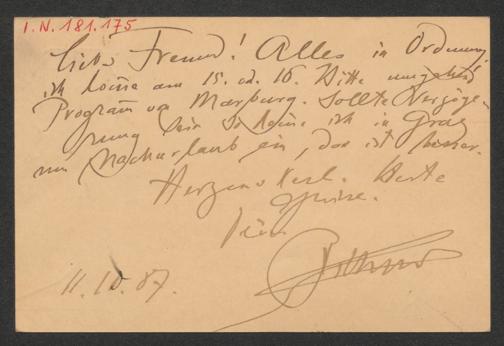 I.N. 181.175
Lieber Freund! Alles in Ordnung,
ich komme am 15. od. 16. Bitte umgehend
Programm von Marburg. Sollte Verzöge-
rung sein so komme ich in Graz
um Nachurlaub ein, das ist besser.
Herzens Kerl. Herte
Grüsse.
Dein
11.10.87.